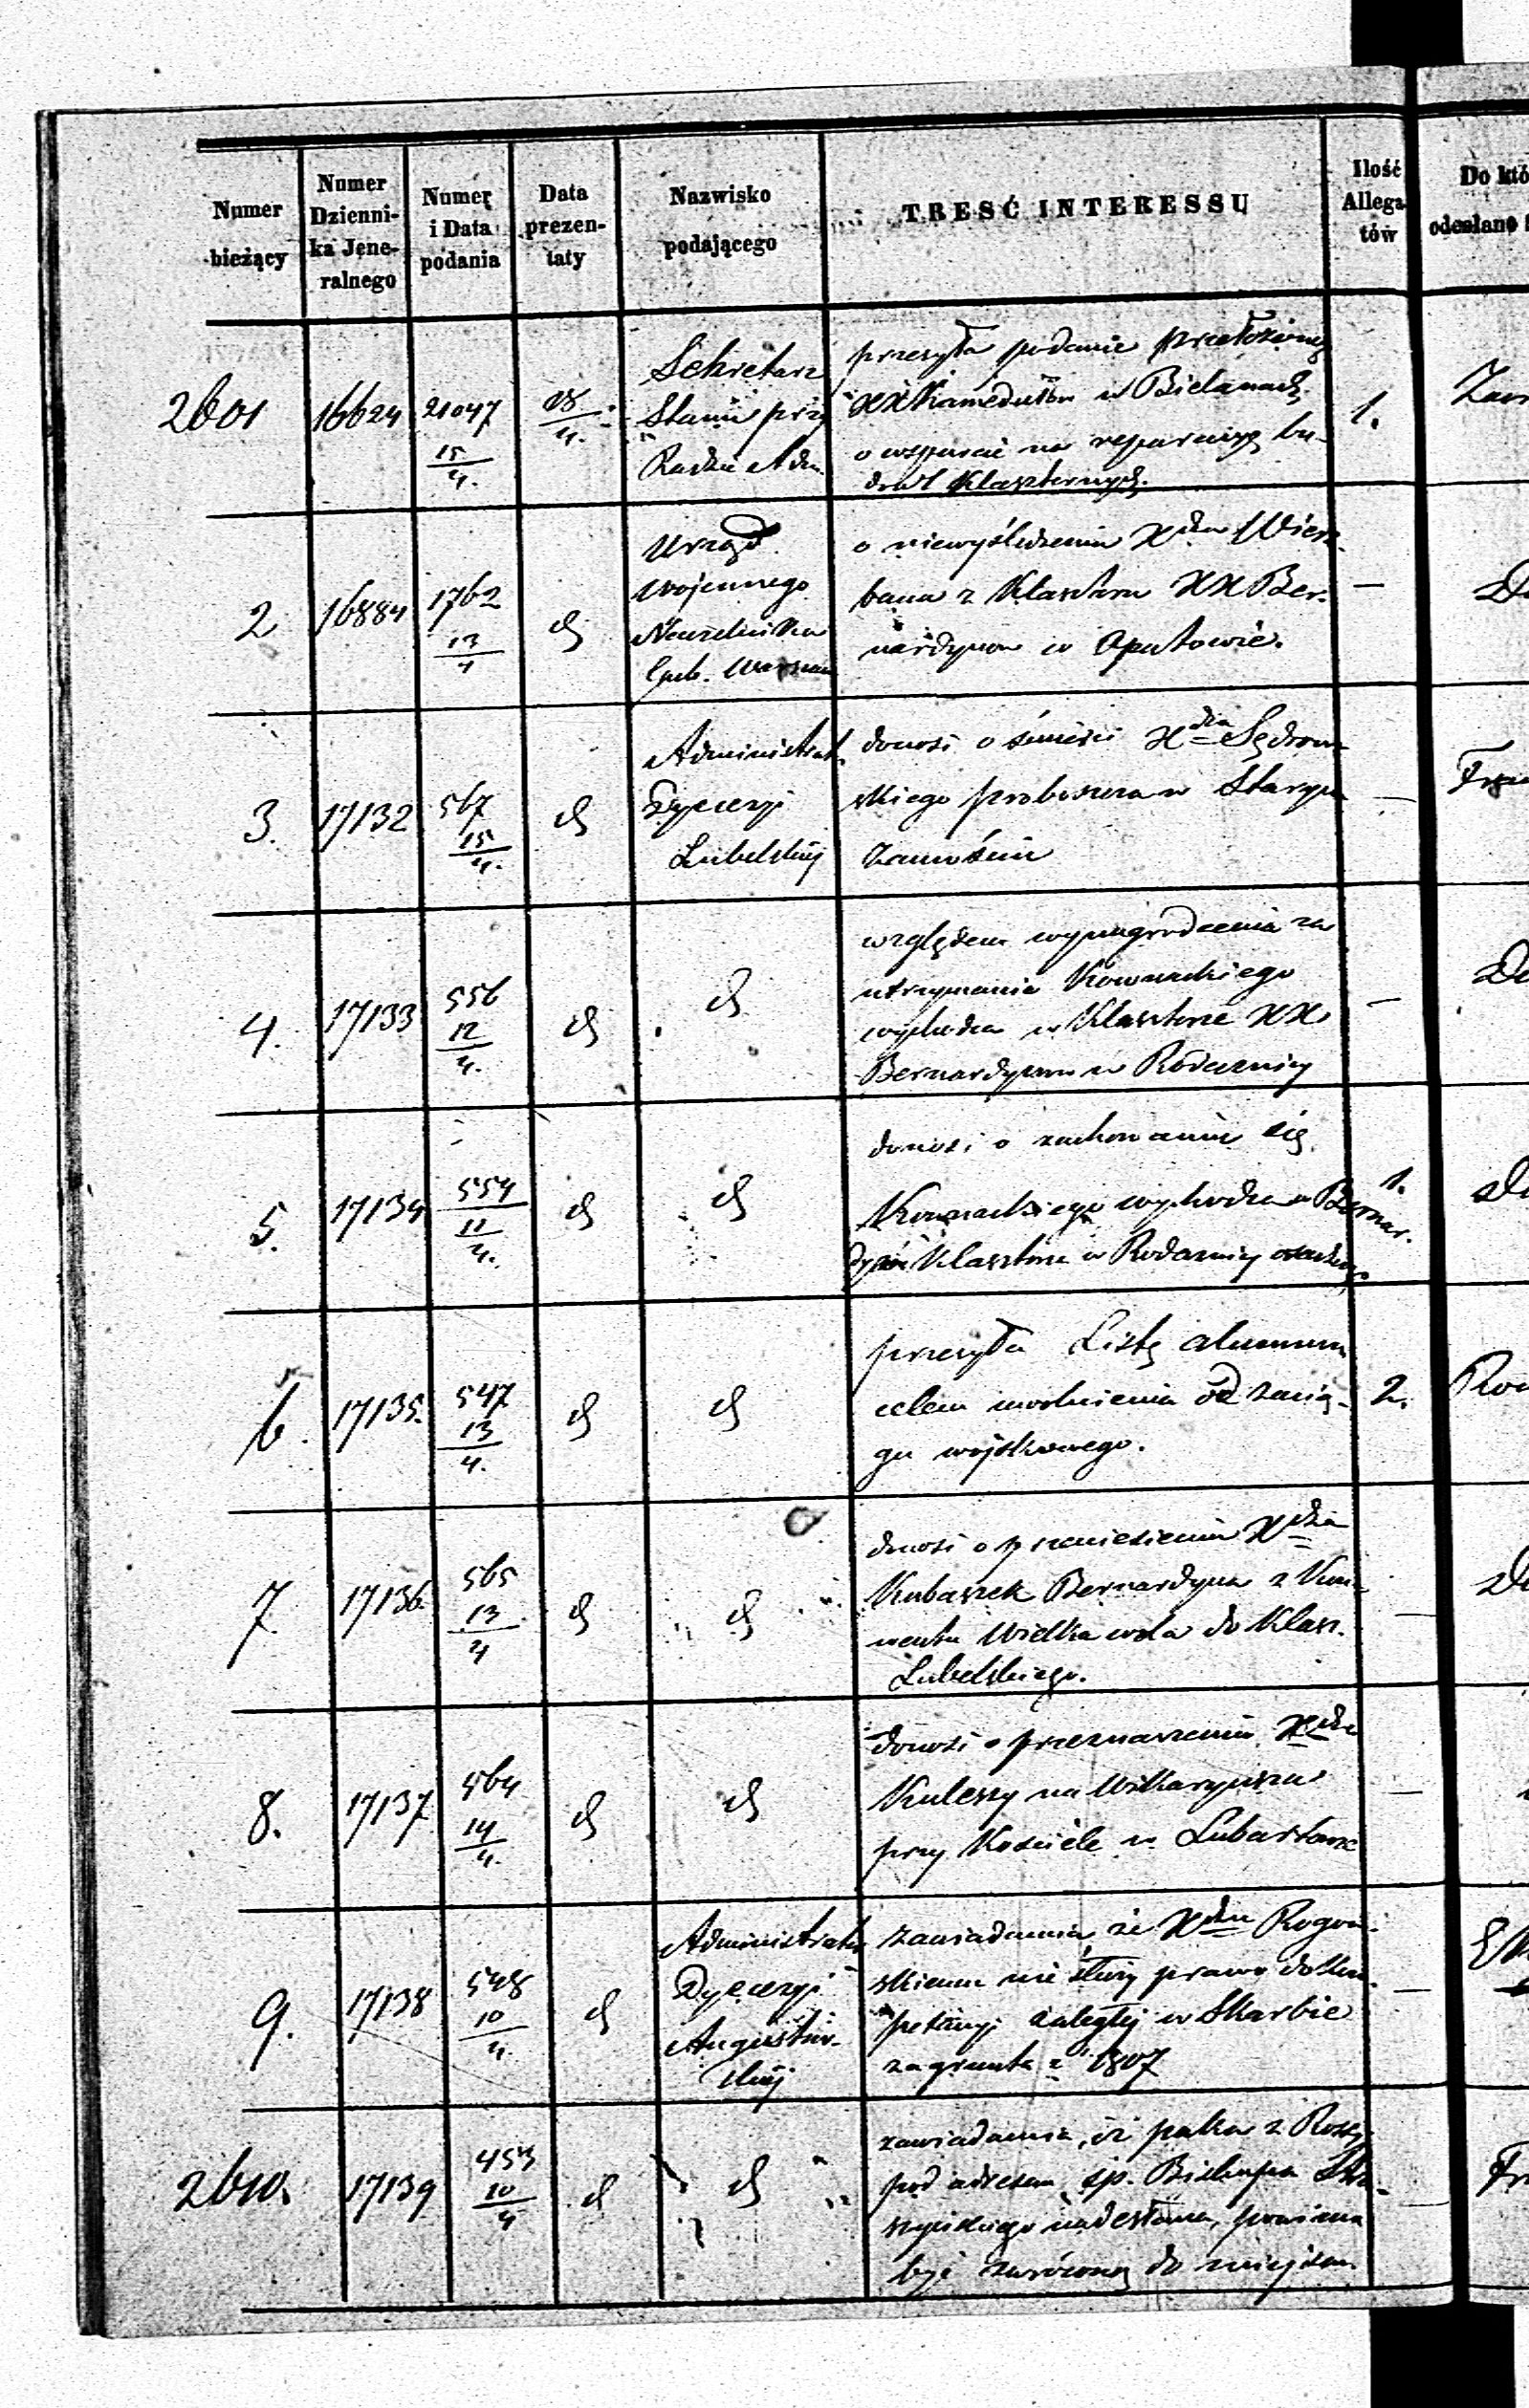 Numer bieżący
Numer Dzienni-ka Jene-ralnego
Numer i Data podania
Data prezen-taty
Nazwisko podającego
TREŚĆ INTERESSU
Ilość Allega tów
Do któ
odesłano
2601
16624
21047
15/4.
18/4.
Sekretarz
Stanu przy
Radzie Adm.
przesyła podanie przełożonego
XX Kamedułów w Bielanach
o wsparcie na reparacyą bu-
dowl Klasztornych.
1.
2
16884
1762
13/4
d
Urząd
Wojennego
Naczelnika
Gub. Warszaw
o niewyśledzeniu Xdza Wierz-
bana z Klasztoru XX Ber-
nardynow w Opatowie.
—
3.
17132
567
15/4.
d
Administrat.
Dyecezyi
Lubelskiej
donosi o śmierci Xdza Sędrow-
skiego proboszcza w Starym
Zamościu
—
4.
17133
556
12/4.
d
d
względem wynagrodzenia za
utrzymanie Kownackiego
wychodca w Klasztorze XX
Bernardynow w Radecznicy
—
5.
17134
554
11/4.
d
d
donosi o zachowaniu się
Kownackiego wychodca w Bernar.
dyń Klasztorze w Radecznicy
1.
6.
17135.
547
13/4.
d
d
przesyła Listę alumnow
celem uwolnienia od zacią-
gu wojskowego.
2.
7
17136
565
13/4
d
d
donosi o przeniesieniu Xdza
Kubaszek Bernardyna z Kon-
wentu Wielka wola do Klasz.
Lubelskiego.
—
8.
17137
564
14/4.
d
d
donosi o przeznaczeniu Xdza
Kuleszy na Wikaryusza
przy Kościele w Lubartowie
—
9.
17138
548
10/4.
d
Administrator
Dyecezyi
Augustow-
skiej
zawiadamia, że Xdzu Rogow-
skiemu nie służy prawo do Kom-
petencyi zaległej w Skarbie
za grunta z 1807
—
2610.
17139
453
10/4
d
d
zawiadamia, iż paka z Rossyi
pod adresem śp. Biskupa Stra-
szyńskiego nadesłana, powinna
być zwróconą do miejsca
—